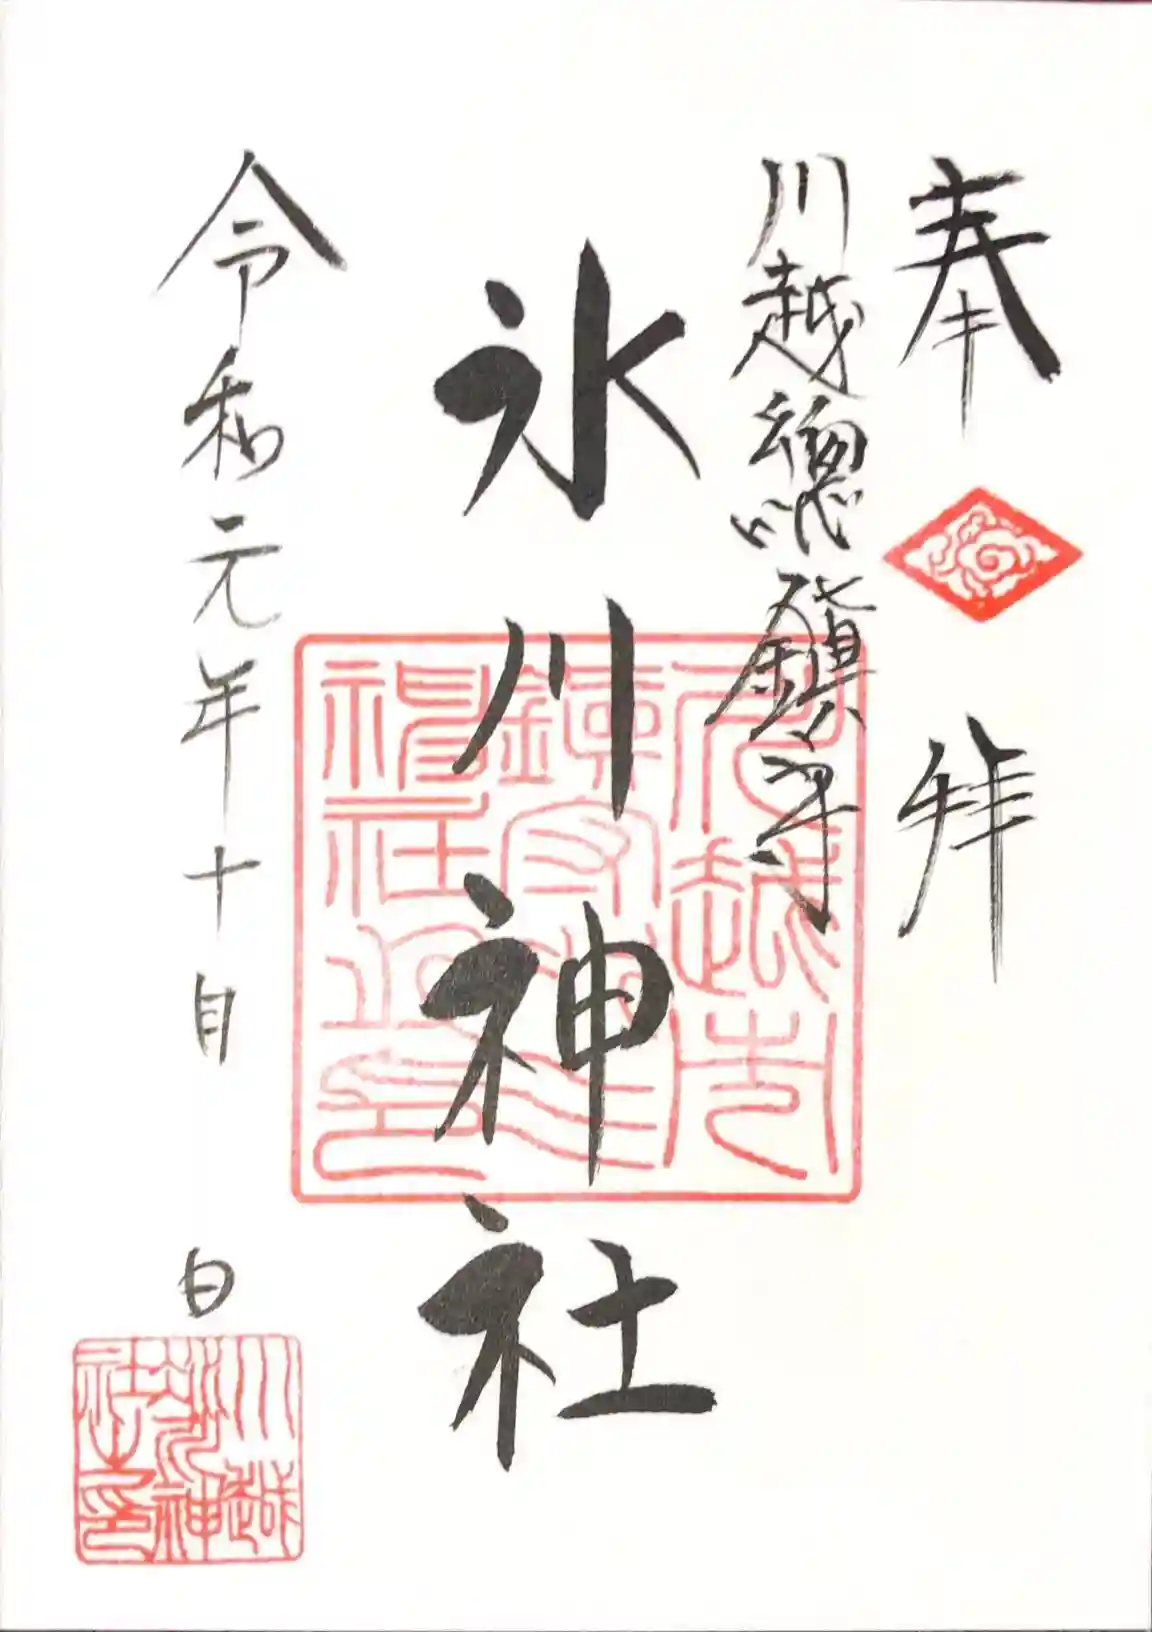 奉拝
川越總鎮守
氷川神社
令和元年十月 日
川越氷川神社之印